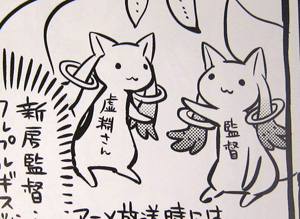 新房監督
ワルプルギス
虚淵さん
監督
アニメ放送時には